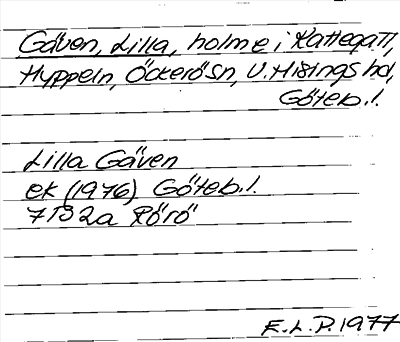 Gäven, Lilla, holme i Kattegatt,
Hyppeln, Öckerö sn, V. Hisings hd,
Göteb. l.
Lilla Gäven
ek (1976) Göteb. l.
7B 2a Rörö
E. L. P. 1977